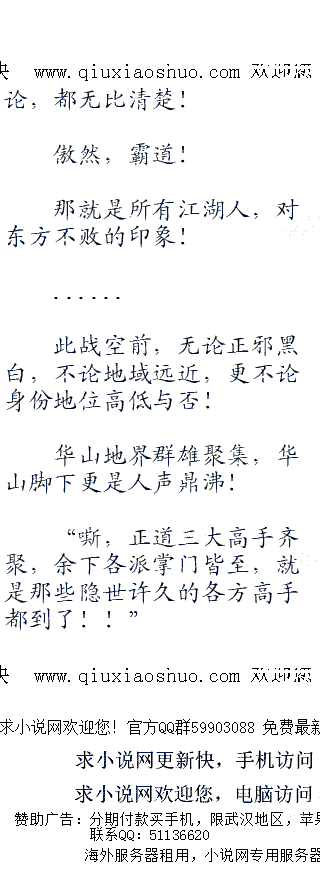 快 www.qiuxiaoshuo.com 欢迎您
论，都无比清楚！
傲然，霸道！
那就是所有江湖人，对
东方不败的印象！
......
此战空前，无论正邪黑
白，不论地域远近，更不论
身份地位高低与否！
华山地界群雄聚集，华
山脚下更是人声鼎沸！
“嘶，正道三大高手齐
聚，余下各派掌门皆至，就
是那些隐世许久的各方高手
都到了！！”
快 www.qiuxiaoshuo.com 欢迎您
求小说网欢迎您！官方QQ群59903088 免费最新
求小说网更新快，手机访问
求小说网欢迎您，电脑访问
赞助广告：分期付款买手机，限武汉地区，苹果
联系QQ：51136620
海外服务器租用，小说网专用服务器